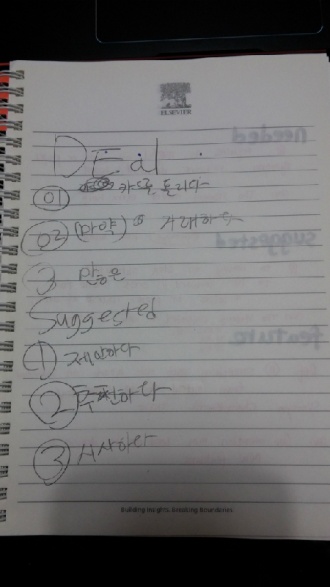 ELSEVIER
DEal
01 카드를 돌리다
02 (마약)을 거래하다
3 많은
Suggested
1 제안하다
2 추천하다
3 시사하다
Building Insights. Breaking Boundaries.